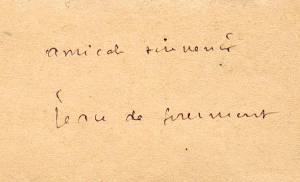 amical souvenir
Jean de Gourmont